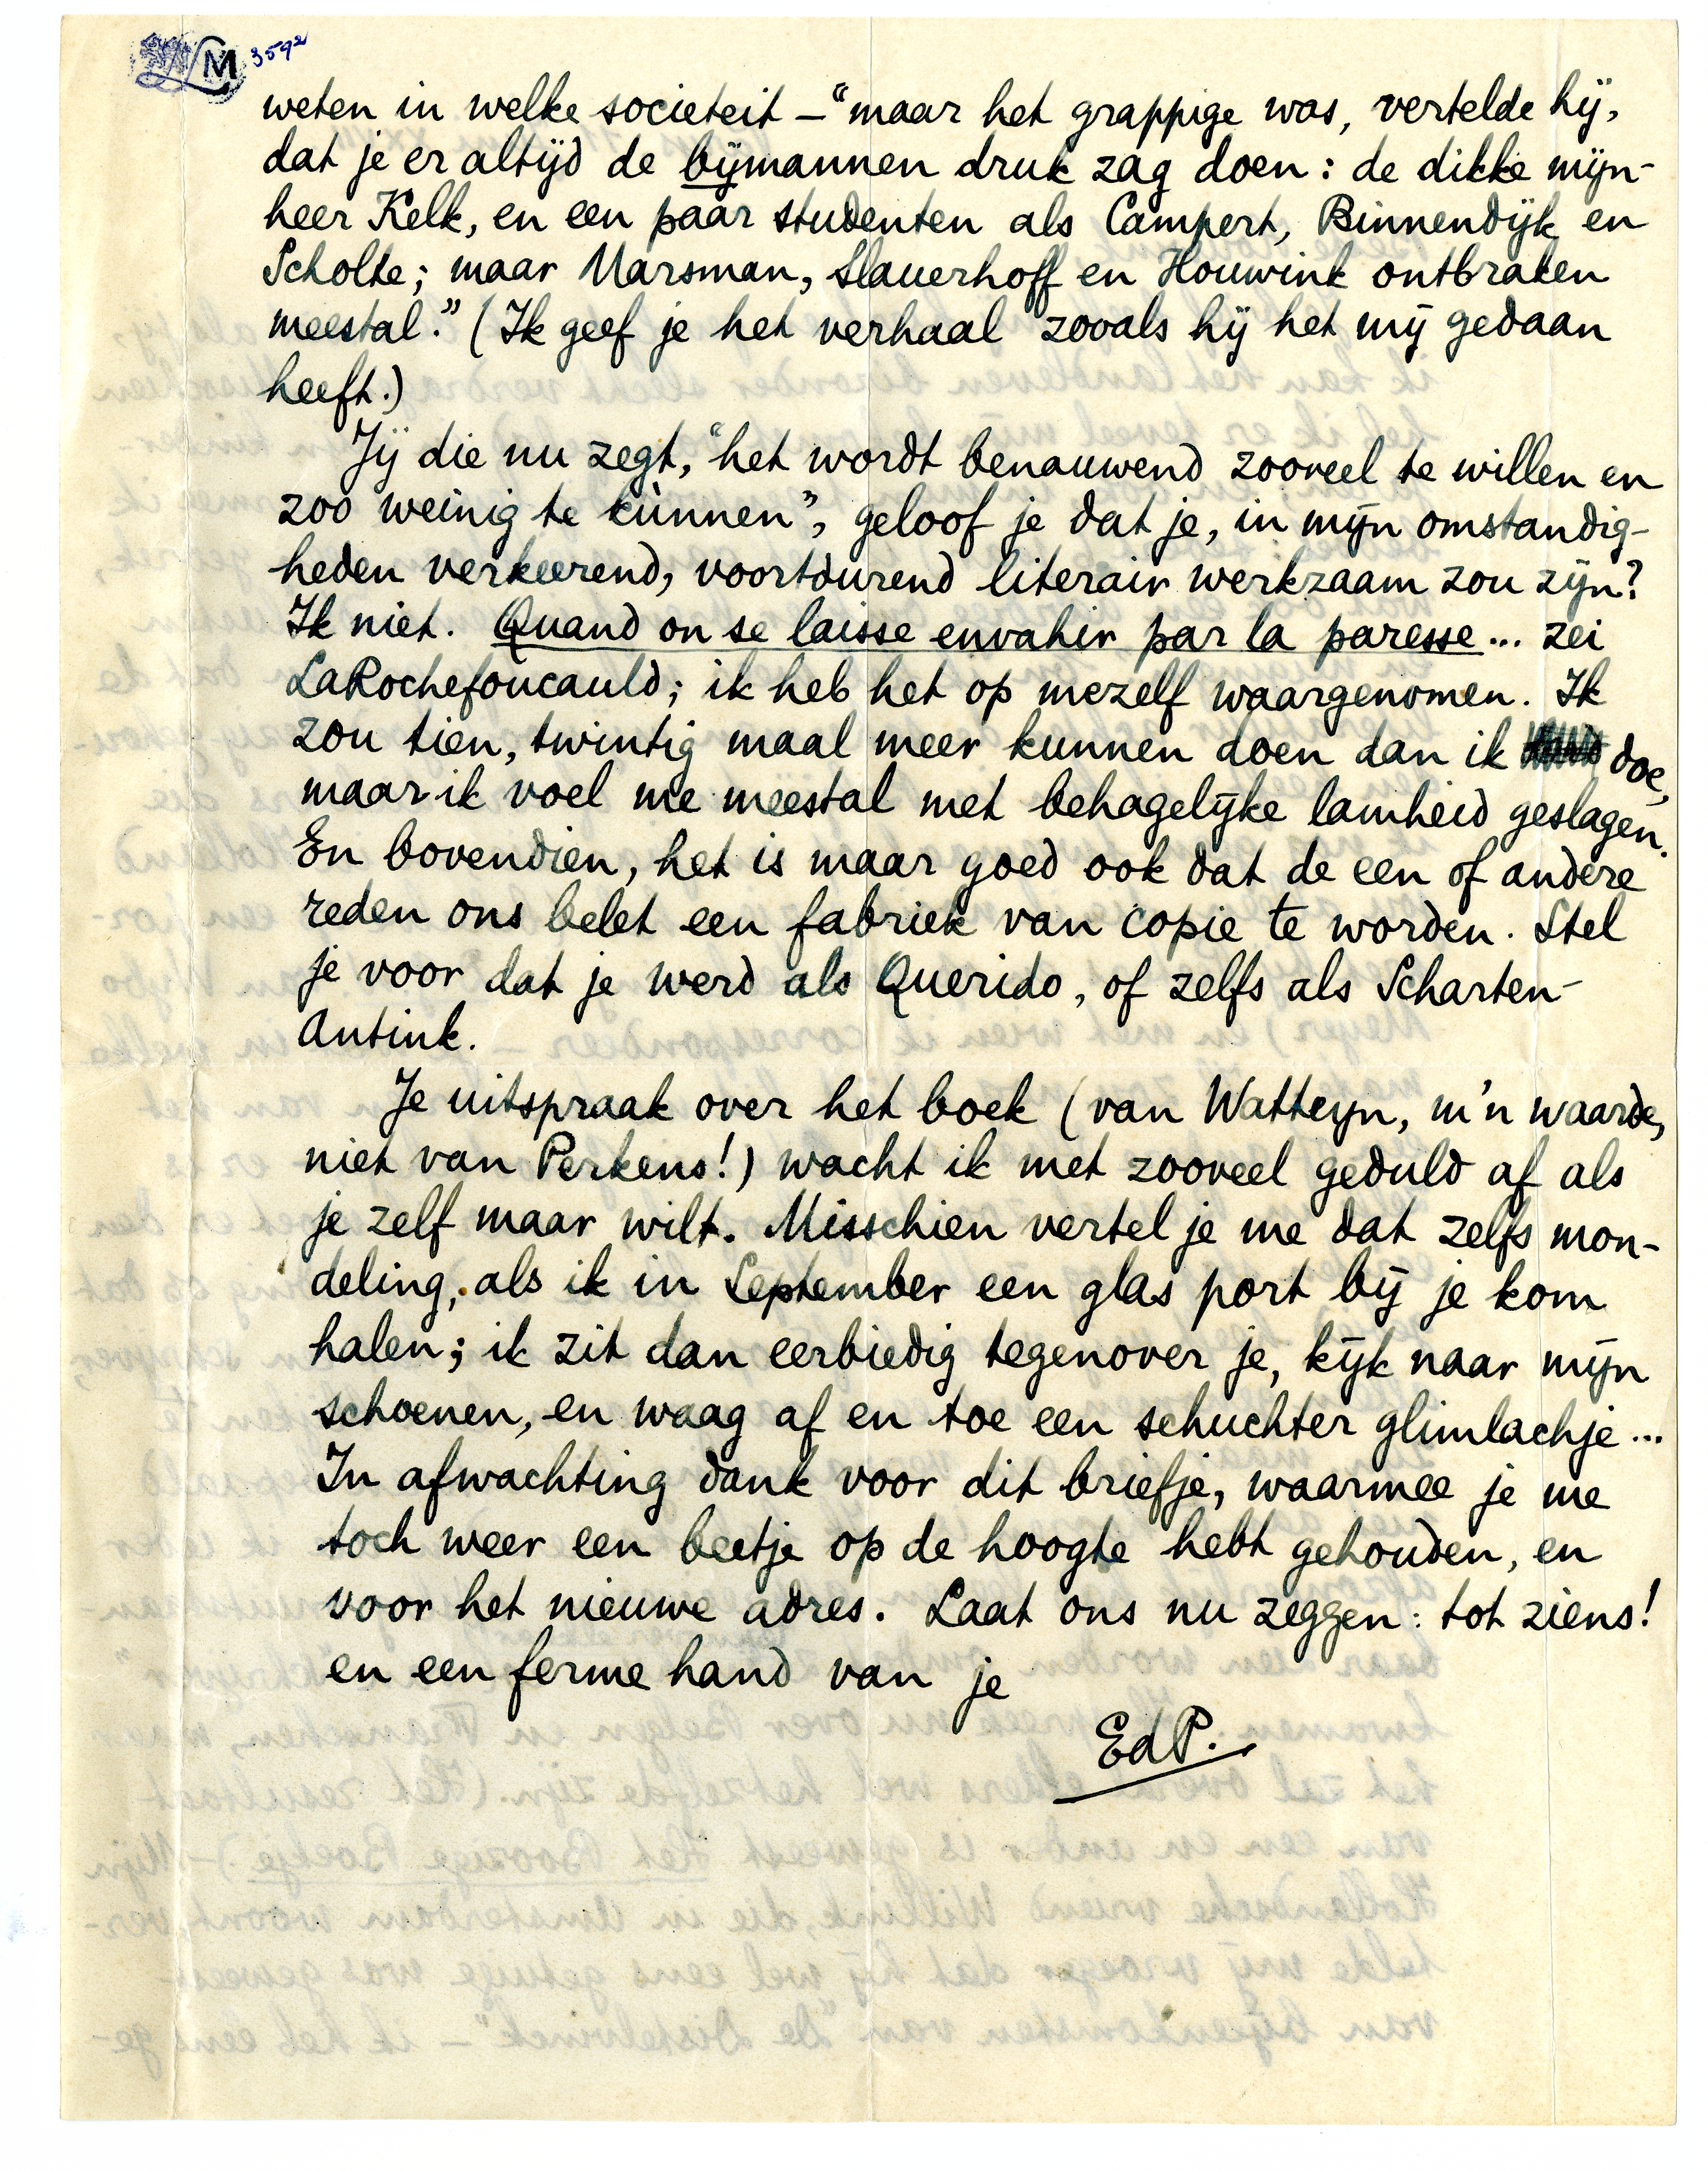 LM 3592
weten in welke societeit – "maar het grappige was, vertelde hij,
dat je er altijd de bijmannen druk zag doen: de dikke mijn-
heer Kelk, en een paar studenten als Campert, Binnendijk en
Scholte; maar Marsman, Slauerhoff en Houwink ontbraken
meestal." (Ik geef je het verhaal zooals hij het mij gedaan
heeft.)
Jij die nu zegt, "het wordt benauwend zooveel te willen en
zoo weinig te kùnnen", geloof je dat je, in mijn omstandig-
heden verkeerend, voortdurend literair werkzaam zou zijn?
Ik niet. Quand on se laisse envahir par la paresse... zei
LaRochefoucauld; ik heb het op mezelf waargenomen. Ik
zou tien, twintig maal meer kunnen doen dan ik doe,
maar ik voel me meestal met behagelijke lamheid geslagen.
En bovendien, het is maar goed ook dat de een of andere
reden ons belet een fabriek van copie te worden. Stel
je voor dat je werd als Querido, of zelfs als Scharten-
Antink.
Je uitspraak over het boek (van Watteyn, m'n waarde,
niet van Perkens!) wacht ik met zooveel geduld af als
je zelf maar wilt. Misschien vertel je me dat zelfs mon-
deling, als ik in September een glas port bij je kom
halen; ik zit dan eerbiedig tegenover je, kijk naar mijn
schoenen, en waag af en toe een schuchter glimlachje...
In afwachting dank voor dit briefje, waarmee je me
toch weer een beetje op de hoogte hebt gehouden, en
voor het nieuwe adres. Laat ons nu zeggen: tot ziens!
en een ferme hand van je
EdP.